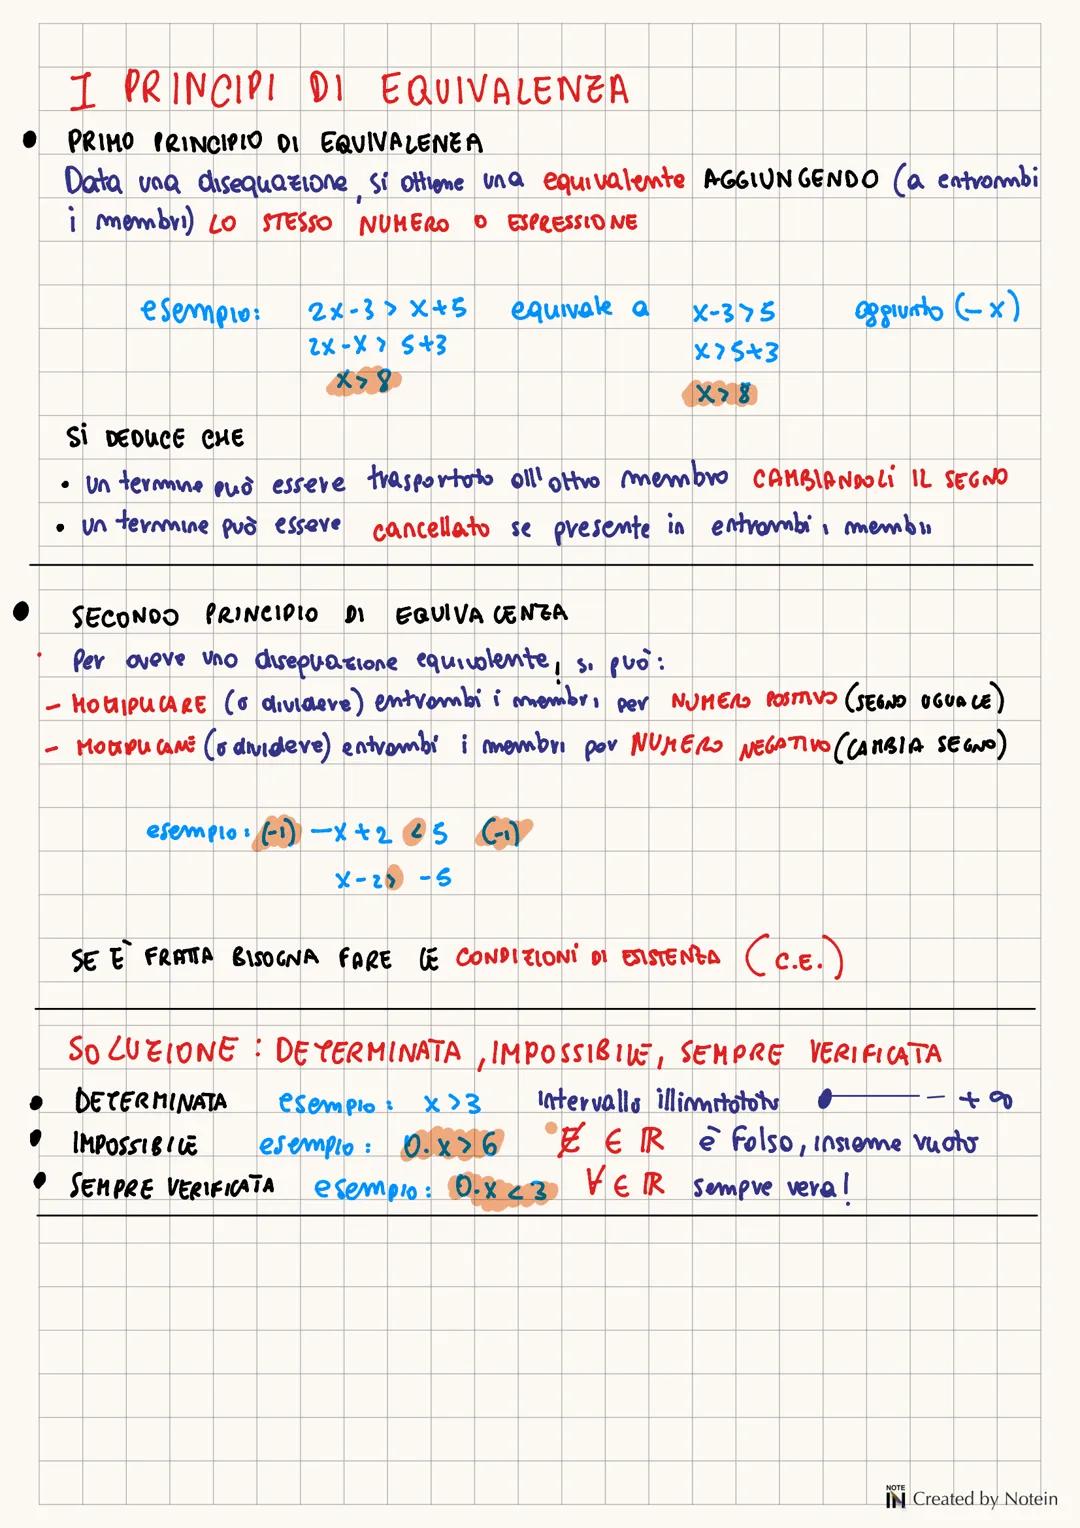 I PRINCIPI DI EQUIVALENZA
• PRIMO PRINCIPIO DI EQUIVALENZA
Data una disequazione, si ottiene una equivalente AGGIUNGENDO (a entrambi
i membri) LO STESSO NUMERO O ESPRESSIONE
esempio: 2x-3 > x+5 equivale a x-3>5 aggiunto (-x)
2x-x > 5+3 x>5+3
x>8 x>8
Si DEDUCE CHE
• un termine può essere trasportato all'altro membro CAMBIANDOLi IL SEGNO
• un termine può essere cancellato se presente in entrambi i membri
• SECONDO PRINCIPIO DI EQUIVALENZA
Per avere una disequazione equivalente, si può:
- MOLTIPLICARE (o dividere) entrambi i membri per NUMERO POSITIVO (SEGNO UGUALE)
- MOLTIPLICARE (o dividere) entrambi i membri per NUMERO NEGATIVO (CAMBIA SEGNO)
esempio: (-1) -x+2 < 5 (-1)
x-2> -5
SE È FRATTA BISOGNA FARE LE CONDIZIONI DI ESISTENZA (C.E.)
SOLUZIONE: DETERMINATA, IMPOSSIBILE, SEMPRE VERIFICATA
• DETERMINATA esempio: x>3 intervallo illimitato +∞
• IMPOSSIBILE esempio: 0.x>6 ∄ ∈ ℝ è falso, insieme vuoto
• SEMPRE VERIFICATA esempio: 0.x<3 ∀ ∈ ℝ sempre vera!
NOTE IN Created by Notein